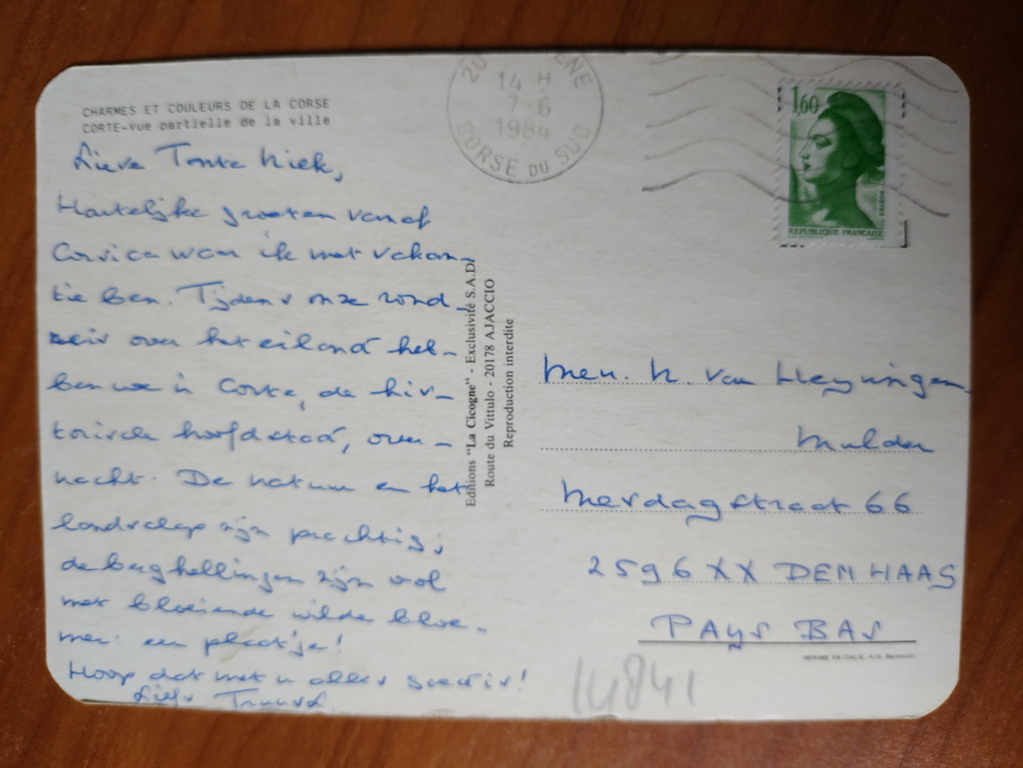 CHARMES ET COULEURS DE LA CORSE
CORTE-vue partielle de la ville
Lieve Tante Niek,
Hartelijke groeten vanaf
Corsica waar ik met vakan-
tie ben. Tijdens onze rond-
reis over het eiland heb-
ben we in Corte, de his-
torische hoofdstad, over-
nacht. De natuur en het
landschap zijn prachtig;
de berghellingen zijn vol
met bloeiende wilde bloe-
men: een plaatje!
Hoop dat met u alles goed is!
Liefs
20 ENE
14 H
7-6
1984
CORSE DU SUD
1,60
REPUBLIQUE FRANÇAISE
Editions "La Cicogne" - Exclusivité S.A.D.
Route du Vittulo - 20178 AJACCIO
Reproduction interdite
Mev. N. van Heyningen
Mulder
Merdagstraat 66
2596 XX DEN HAAG
PAYS BAS
14841